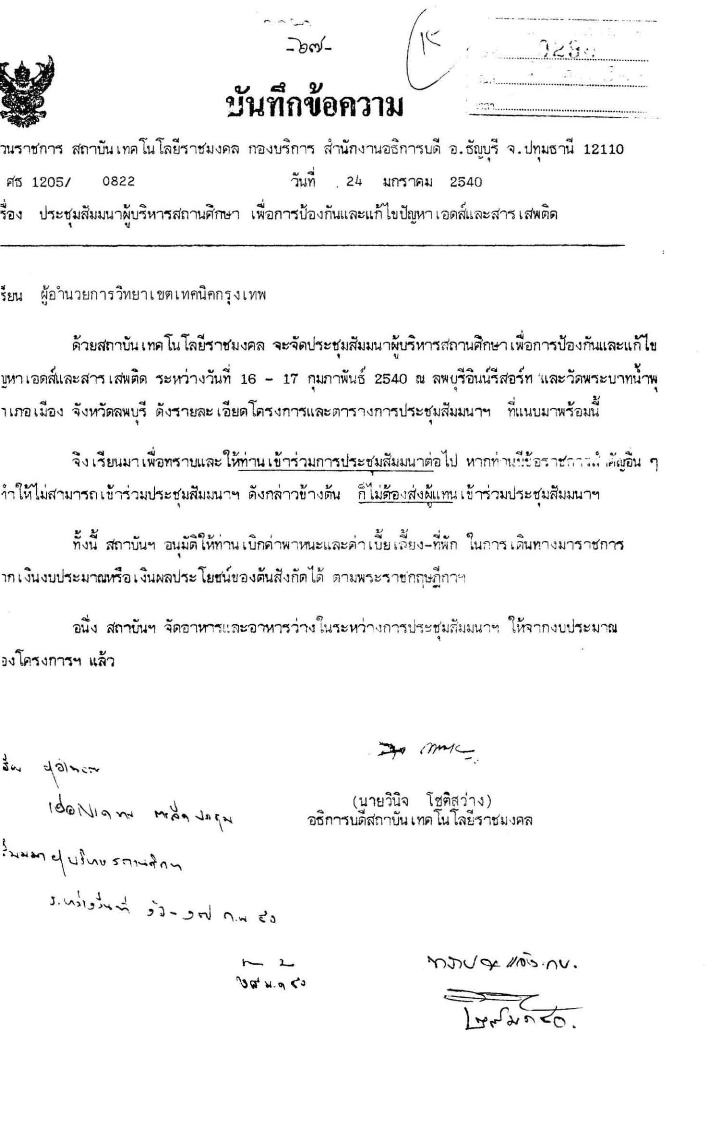 -๖๗-
บันทึกข้อความ
วนราชการ สถาบันเทคโนโลยีราชมงคล กองบริการ สำนักงานอธิการบดี อ.ธัญบุรี จ.ปทุมธานี 12110
ศธ 1205/ 0822 วันที่ 24 มกราคม 2540
รื่อง ประชุมสัมมนาผู้บริหารสถานศึกษา เพื่อการป้องกันและแก้ไขปัญหาเอดส์และสารเสพติด
รียน ผู้อำนวยการวิทยาเขตเทคนิคกรุงเทพ
ด้วยสถาบันเทคโนโลยีราชมงคล จะจัดประชุมสัมมนาผู้บริหารสถานศึกษาเพื่อการป้องกันและแก้ไข
ญหาเอดส์และสารเสพติด ระหว่างวันที่ 16 - 17 กุมภาพันธ์ 2540 ณ ลพบุรีอินน์รีสอร์ท และวัดพระบาทน้ำพุ
าเภอเมือง จังหวัดลพบุรี ดังรายละเอียดโครงการและตารางการประชุมสัมมนาฯ ที่แนบมาพร้อมนี้
จึงเรียนมาเพื่อทราบและให้ท่านเข้าร่วมการประชุมสัมมนาต่อไป หากท่านมีข้อราชการสำคัญอื่น ๆ
ทำให้ไม่สามารถเข้าร่วมประชุมสัมมนาฯ ดังกล่าวข้างต้น ก็ไม่ต้องส่งผู้แทนเข้าร่วมประชุมสัมมนาฯ
ทั้งนี้ สถาบันฯ อนุมัติให้ท่านเบิกค่าพาหนะและค่าเบี้ยเลี้ยง-ที่พัก ในการเดินทางมาราชการ
ากเงินงบประมาณหรือเงินผลประโยชน์ของต้นสังกัดได้ ตามพระราชกฤษฎีกาฯ
อนึ่ง สถาบันฯ จัดอาหารและอาหารว่างในระหว่างการประชุมสัมมนาฯ ให้จากงบประมาณ
องโครงการฯ แล้ว
(นายวินิจ โชติสว่าง)
อธิการบดีสถาบันเทคโนโลยีราชมงคล
ระหว่างวันที่ ๑๖-๑๗ ก.พ ๔๐